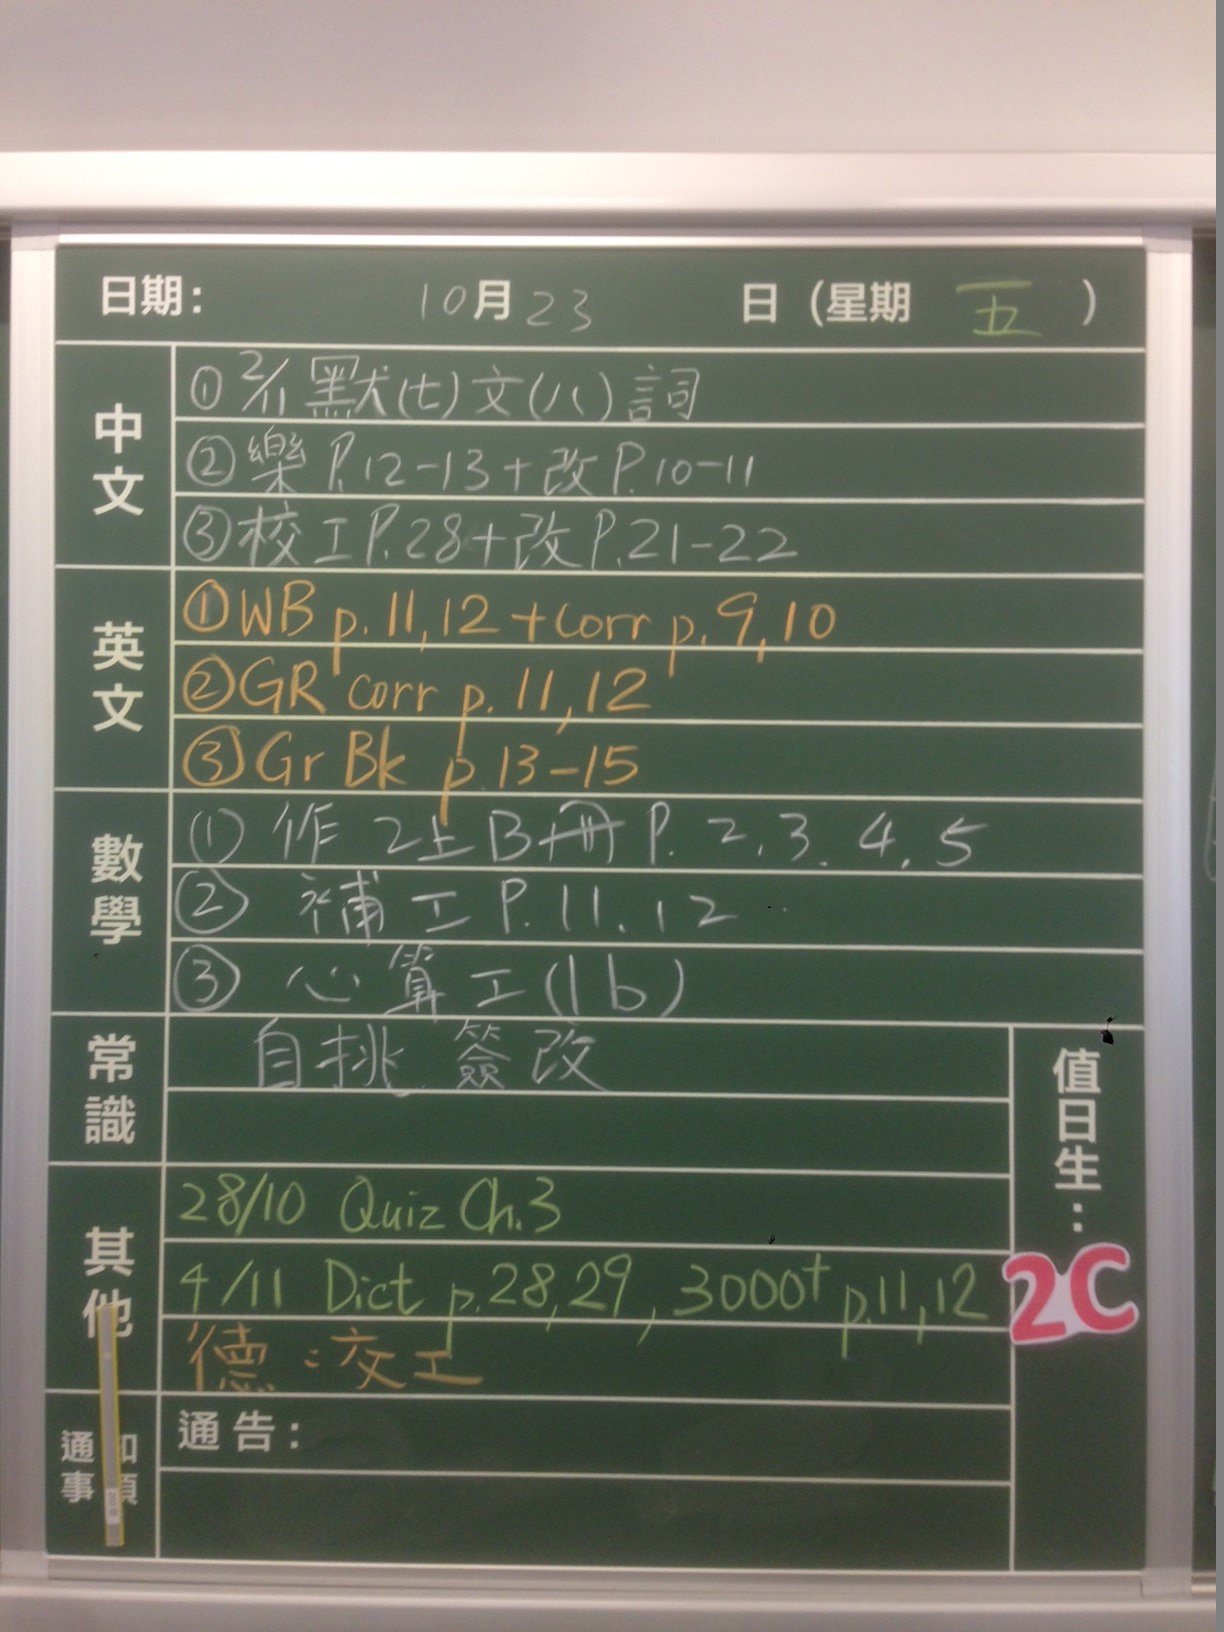 日期： 10月23 日（星期 五 ）
中文
① 2/11 默(七)文(八)詞
② 樂 P.12-13+改 P.10-11
③ 校工 P.28+改 P.21-22
英文
① WB p.11,12 + corr p.9,10
② GR corr p.11,12
③ Gr Bk p.13-15
數學
(1) 作 2上B冊 P. 2.3.4.5
② 補工 P.11.12
③ 心算工(1b)
常識
自挑 簽改
其他
28/10 Quiz Ch.3
4/11 Dict p.28,29, 3000+ p.11,12
德：交工
通知事項
通告：
值日生：
2C